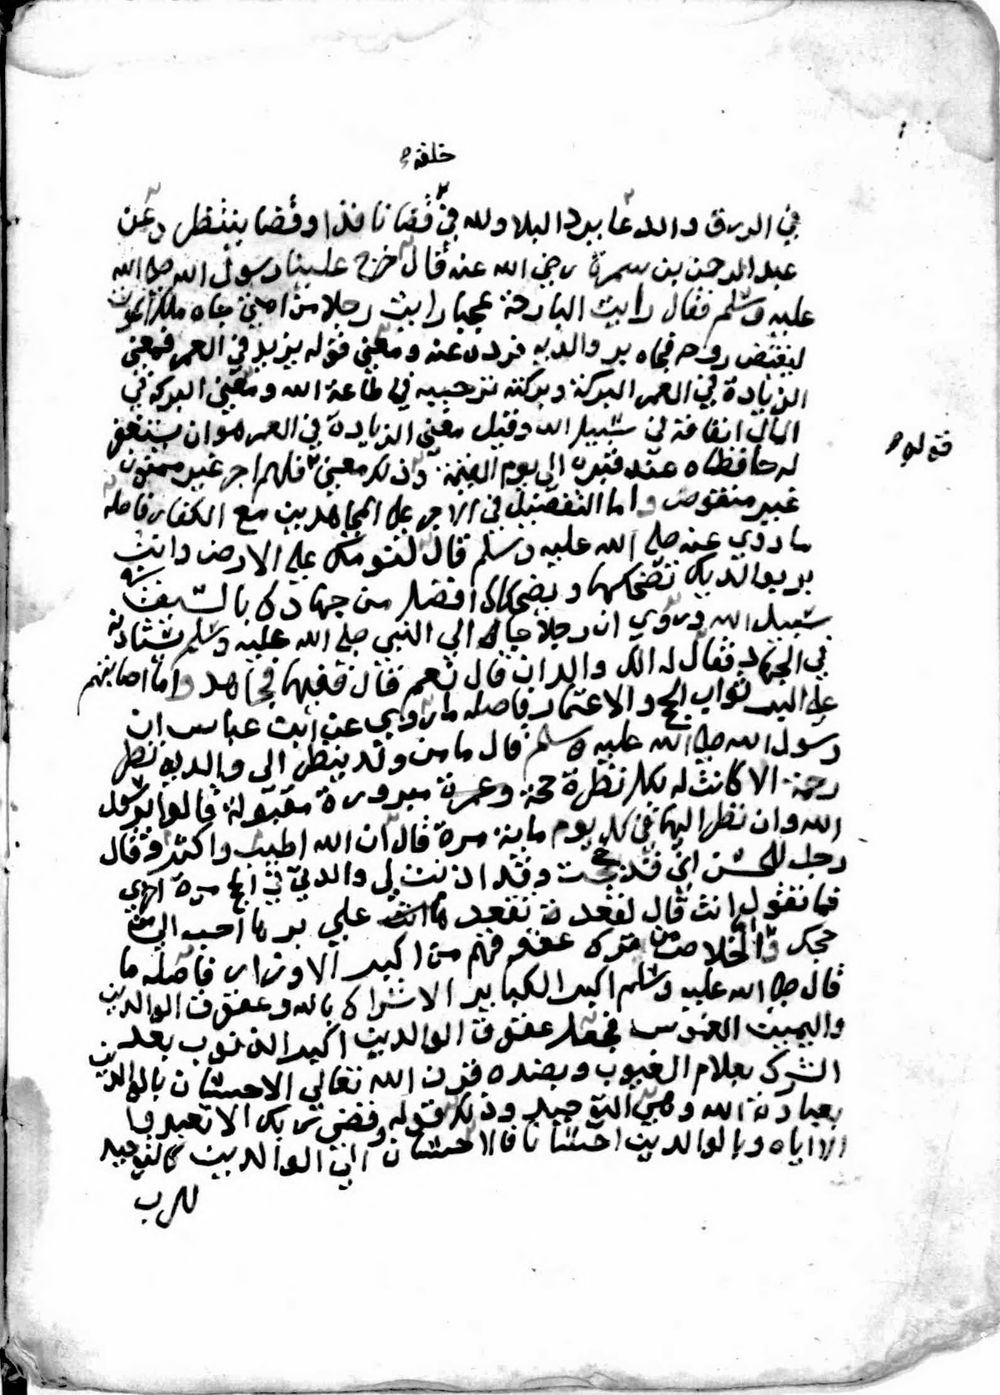 خلقه
في الرزق والدعا يرد البلا ولله في قضا نافذا وقضا ينتظر وعن
عبد الرحمن بن سمرة رضي الله عنه قال خرج علينا رسول الله صلى الله
عليه وسلم فقال رايت البارحة عجبا رايت رجلا من امتي جاه ملك الموت
ليقبض روحه فجاه بر والديه فرده عنه ومعنى قوله يزيد في العمر فمعنى
الزيادة في العمر البركة وبركته ترحيبه في طاعة الله ومعنى البركة في
المال انفاقه في سبيل الله وقيل معنى الزيادة في العمر هو ان يستغفر
قوله
له حافظاه عند قبره الى يوم القيمة وذلك معنى فلهم اجر غير ممنون
غير منقوص واما التفضيل في الاجر على المجاهدين مع الكفار فاصله
ما روي عنه صلى الله عليه وسلم قال لنومك على الارض وانت
بر بوالديك تضحكهما ويضحكاك افضل من جهادك بالسيف في
سبيل الله وروي ان رجلا جاه الى النبي صلى الله عليه وسلم يستاذنه
في الجهاد فقال له الك والدان قال نعم قال ففيهما فجاهد واما
على البر ثواب الحج والاعتمار فاصله ما روي عن ابن عباس ان
رسول الله صلى الله عليه وسلم قال ما من ولد ينظر الى والديه نظر
رحمة الا كانت له بكل نظرة حجة وعمرة مبرورة مقبولة قالوا يرسول
الله وان نظر اليهما في كل يوم ماية مرة قال ان الله اطيب واكثر وقال
رجل للحسن اني قد حججت وقد اذنت لي والدتي في الحج مرة اخرى
فما تقول انت قال لقعدة تقعدها انت علي برها احب الي من
حجك والخلاص من عقوقهم من اكبر الاوزار فاصله ما
قال صلى الله عليه وسلم اكبر الكباير الاشراك بالله وعقوق الوالدين
واليمين الغموس فجعل عقوق الوالدين اكبر الذنوب بعد
الشرك بعلام الغيوب وبضده قرن الله تعالى الاحسان بالوالدين
بعبادة الله وهي التوحيد وذلك قوله وقضى ربك الا تعبدوا
الا اياه وبالوالدين احسانا فالاحسان الى الوالدين كالتوحيد
للرب